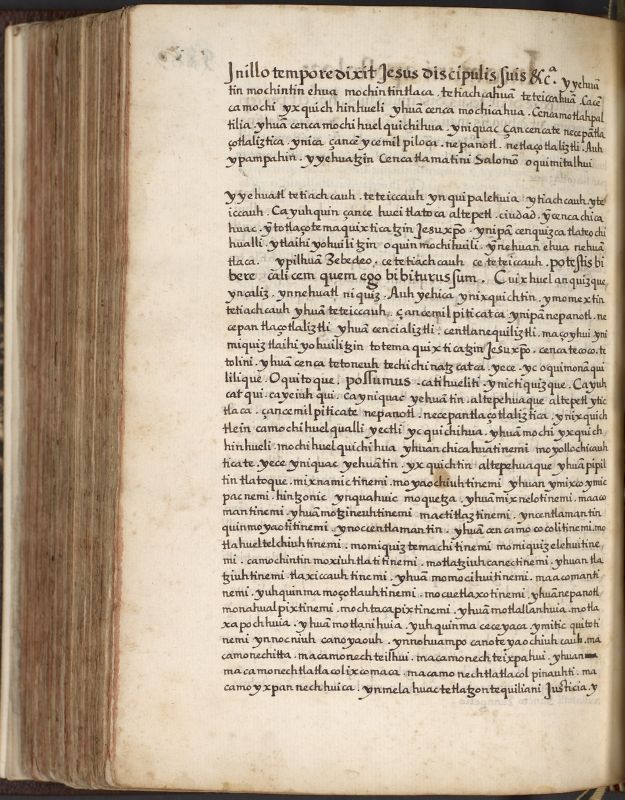 Jnillo tempore dixit Jesus discipulis suis &cª. yyehuã
tin mochintin ehua mochintintlaca. tetiachcahuã teteiccahuã. Cacẽ
camochi yxquich hinhueli yhuã cenca mochicahua. Cencamotlahpal
tilia. yhuã cenca mochi huel quichihua. yniquac çancencate necepãtla
çotlaliztica. ynica çancẽ ycemilpiloca. nepanotl. netlaçotlaliztli. Auh
ypampahin. yyehuatzin Cenca tlamatini Salomõ oquimitalhui
yyehuatl tetiachcauh. teteiccauh ynquipalehuia ytiachcauh. yte
iccauh. Cayuhquin çance huei tlatoca altepetl. ciudad. yc̃encachica
huac. yñtotlaçotemaquixticatzin Jesuxp̃o. ynipã cenquizca tlateochi
hualli. ytlaihiyohuilitzin oquinmochihuili. ynehuan ehua nehuã
tlaca. ypilhuã Zebedeo. ce tetiachcauh ce teteiccauh. potestis bi
bere cãlicem quem ego bibiturus sum. Cuixhuel anquizque
yncaliz. ynnehuatl niquiz. Auh yehica ynixquichtin. ymomextin
tetiachcauh yhuã teteiccauh. çancemilpiticatca ynipã nepanotl. ne
cepantlaçotlaliztli yhuã cencializtli. centlanequiliztli. maçoyhui yni
miquiztlaihiyohuilitzin totemaquixticatzin Jesuxp̃o. cenca tecoco. te
tolini. yhuã cenca tetoneuh techichinatzcatca. yece. yc oquimonãqui
lilique. Oquitoque. possumus. catihueliti. ynictiquizque. Cayuh
catqui. cayeiuhqui. cayniquac yehuãtin. altepehuaque altepetl ytic
tlaca. çancemilpiticate nepanotl. necepantlaçotlaliztica. ynixquich
tlein camochi huelqualli yectli yc quichihua. yhuã mochi yxquich
hinhueli. mochi huelquichihua yhuan chicahuatinemi moyollochicauh
ticate. yece yniquac yehuãtin. yxquichtin altepehuaque yhuã pipil
tin tlatoque. mixnamictinemi. moyaochiuhtinemi yhuan ymixco ymic
pac nemi. hintzonic ynquahuic moquetza. yhuã mixnelotinemi. maaco
mantinemi. yhuã motzineuhtinemi mactitlaztinemi. yncentlamantin
quinmoyaotitinemi. ynoccentlamantin. yhuã cencamo cocolitinemi. mo
tlahueltelchiuhtinemi. momiquiztemachitinemi momiquizelehuitine
mi. camochintin moxiuhtlatitinemi. motlatziuhcanectinemi. yhuan tla
tziuhtinemi tlaxiccauhtinemi. yhuã momocihuitinemi. maacomanti
nemi. yuhquinma moçotlauhtinemi. mocuetlaxotinemi. yhuã nepanotl
monahualpixtinemi. mochtacapixtinemi. yhuã motlallanhuia. motla
xapochhuia. yhuã motlanihuia. yuhquinma ceceyaca. ymitic quitoti
nemi ynnocniuh canoyaouh. ynnohuampo canoteyaochiuhcauh. ma
camonechitta. macamonechteilhui. macamonechteixpahui. yhuan
macamonechtlatlacolixcomaca. macamonechtlatlacolpinauhti. ma
camo yxpan nechhuica. ynmelahuac tetlatzontequiliani Justicia. y